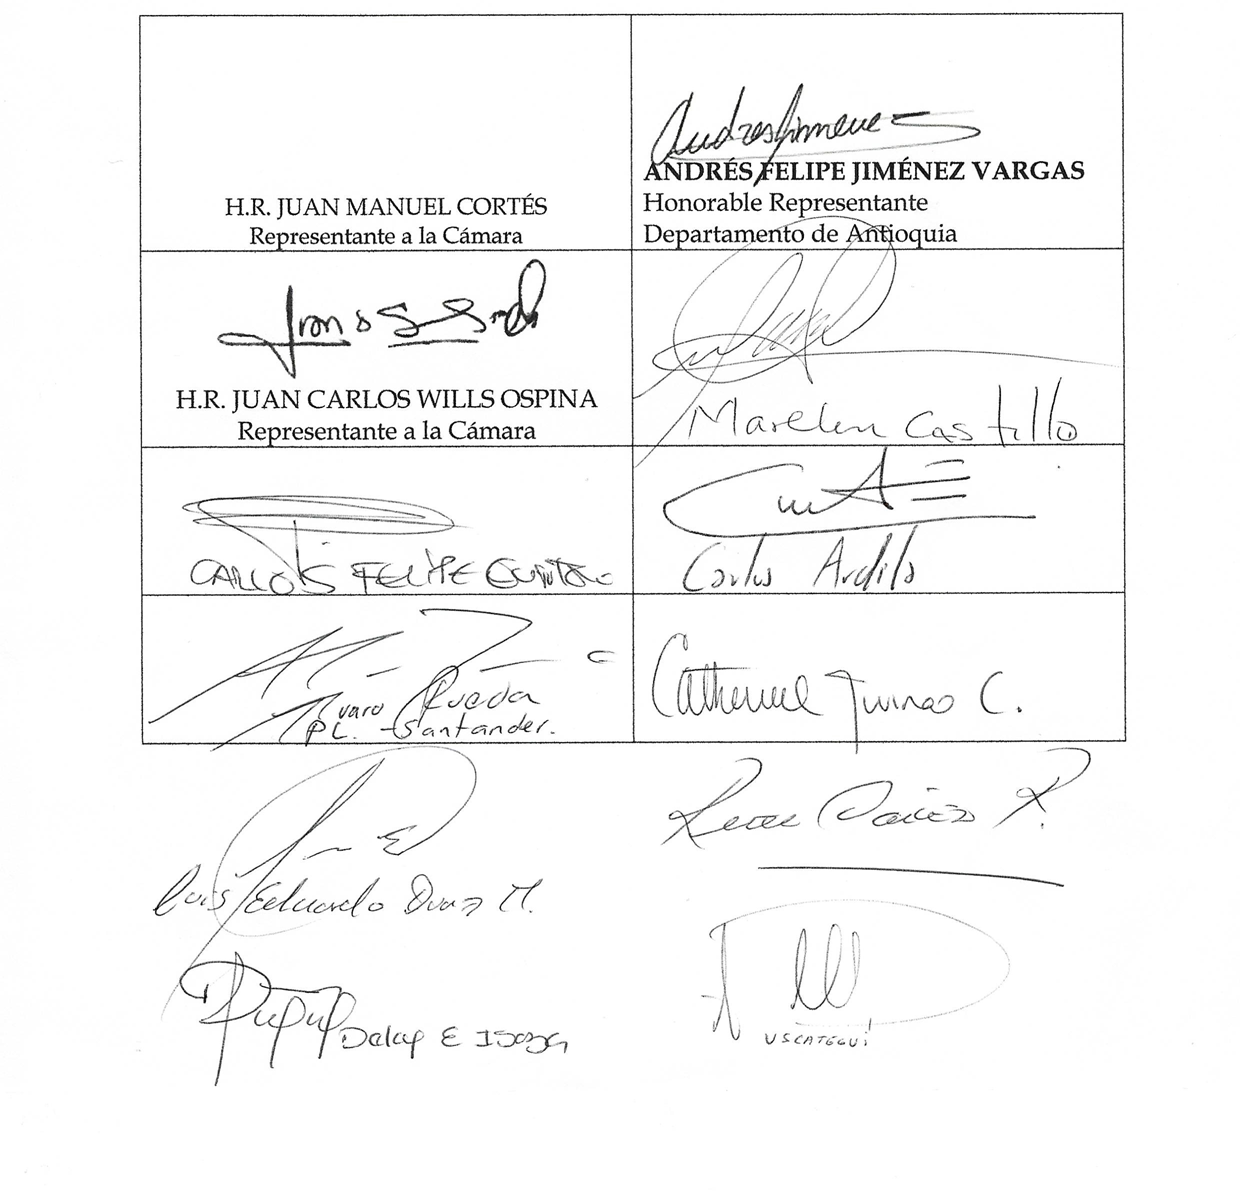 H.R. JUAN MANUEL CORTÉS
Representante a la Cámara
ANDRÉS FELIPE JIMÉNEZ VARGAS
Honorable Representante
Departamento de Antioquia
H.R. JUAN CARLOS WILLS OSPINA
Representante a la Cámara
Marelen Castillo
CARLOS FELIPE
Carlos Ardila
Alvaro Rueda
PL. - Santander.
Catherine Juvinao C.
Luis Eduardo Diaz M.
Delcy E Isaza
USCATEGUi